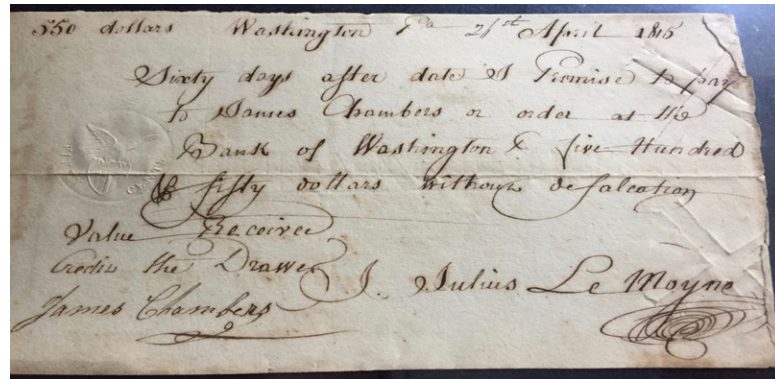 550 dollars Washington Pa 21st April 1815
Sixty days after date I Promise to pay
to James Chambers or order at the
Bank of Washington five Hundred
& fifty dollars without defalcation
Value Received
Credit the Drawer J. Julius Le Moyne
James Chambers